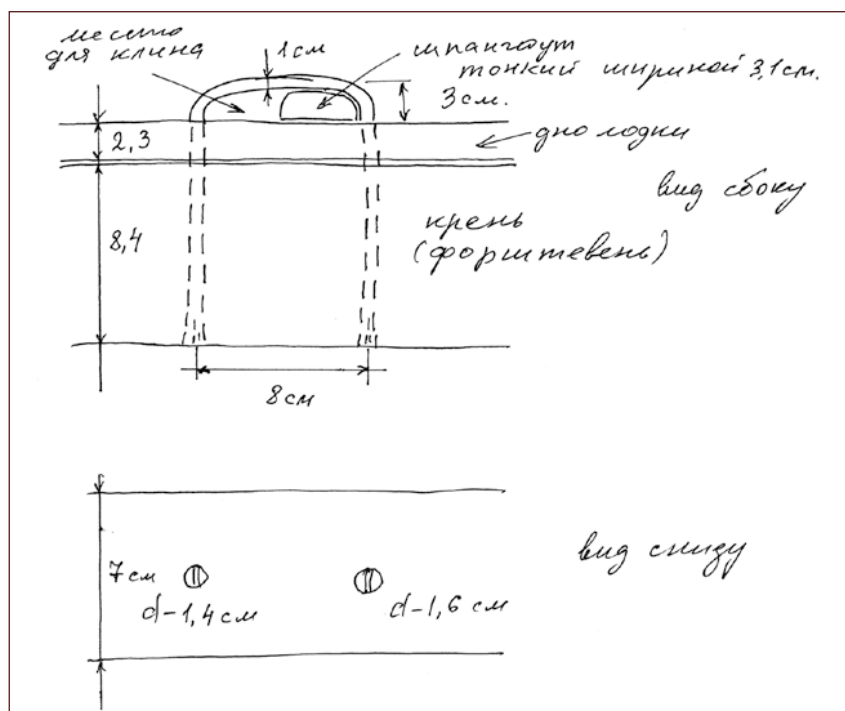 место
для клина
1 см
шпангоут
тонкий шириной 3,1 см.
3 см.
2,3
дно лодки
вид сбоку
8,4
крень
(форштевень)
8 см
7 см
d-1,4 см
d-1,6 см
вид снизу